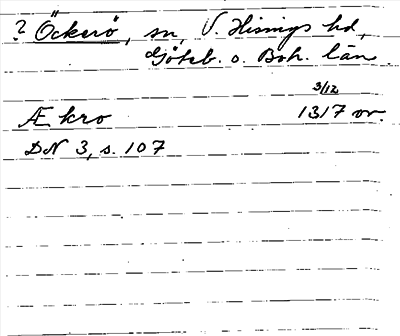 ? Öckerö, sn, V. Hisings hd,
Göteb. o. Boh. län.
3/12
Æ kro 1317 or.
DN 3, s. 107